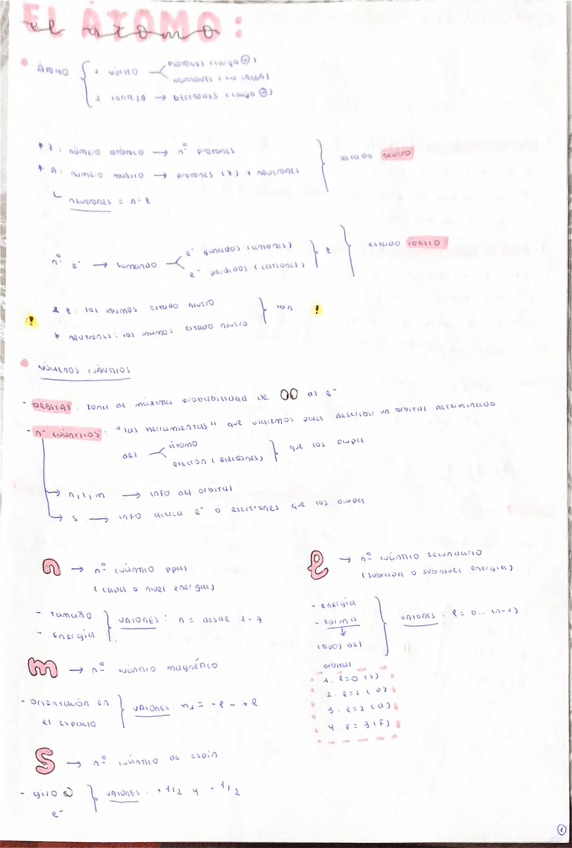 EL ÁTOMO:
el átomo
ÁTOMO
* núcleo
PROTONES (carga ⊕)
neutrones (sin carga)
* corteza → electrones (carga ⊖)
* Z: número atómico → nº protones
* A: número másico → protones (Z) + neutrones
estado neutro
neutrones = A-Z
nº e⁻ → tomando
e⁻ ganados (aniones)
e⁻ perdidos (cationes)
Z
estado iónico
! * Z: los mismos estado neutro
* neutrones: los mismos estado neutro
ion !
números cuánticos
- ORBITAL: zona de máxima probabilidad de al e⁻
- nº cuánticos: "las herramientas" que usaremos para describir un orbital determinado
del
átomo
electrón (electrones)
que los ocupa
→ n, l, m → info del orbital
→ s → info acerca e⁻ o electrones que los ocupa
n → nº cuántico ppal
(capa o nivel energía)
- tamaño
- energía
VALORES: n = desde 1-7
l → nº cuántico secundario
(subcapa o subnivel energía)
- energía
- forma
tipos del
orbital
VALORES: l = 0... (n-1)
1. l=0 (s)
2. l=1 (p)
3. l=2 (d)
4. l=3 (f)
m → nº cuántico magnético
- orientación en
el espacio
VALORES: = -l - +l
s → nº cuántico de espín
- giro
e⁻
VALORES: +1/2 y -1/2
1